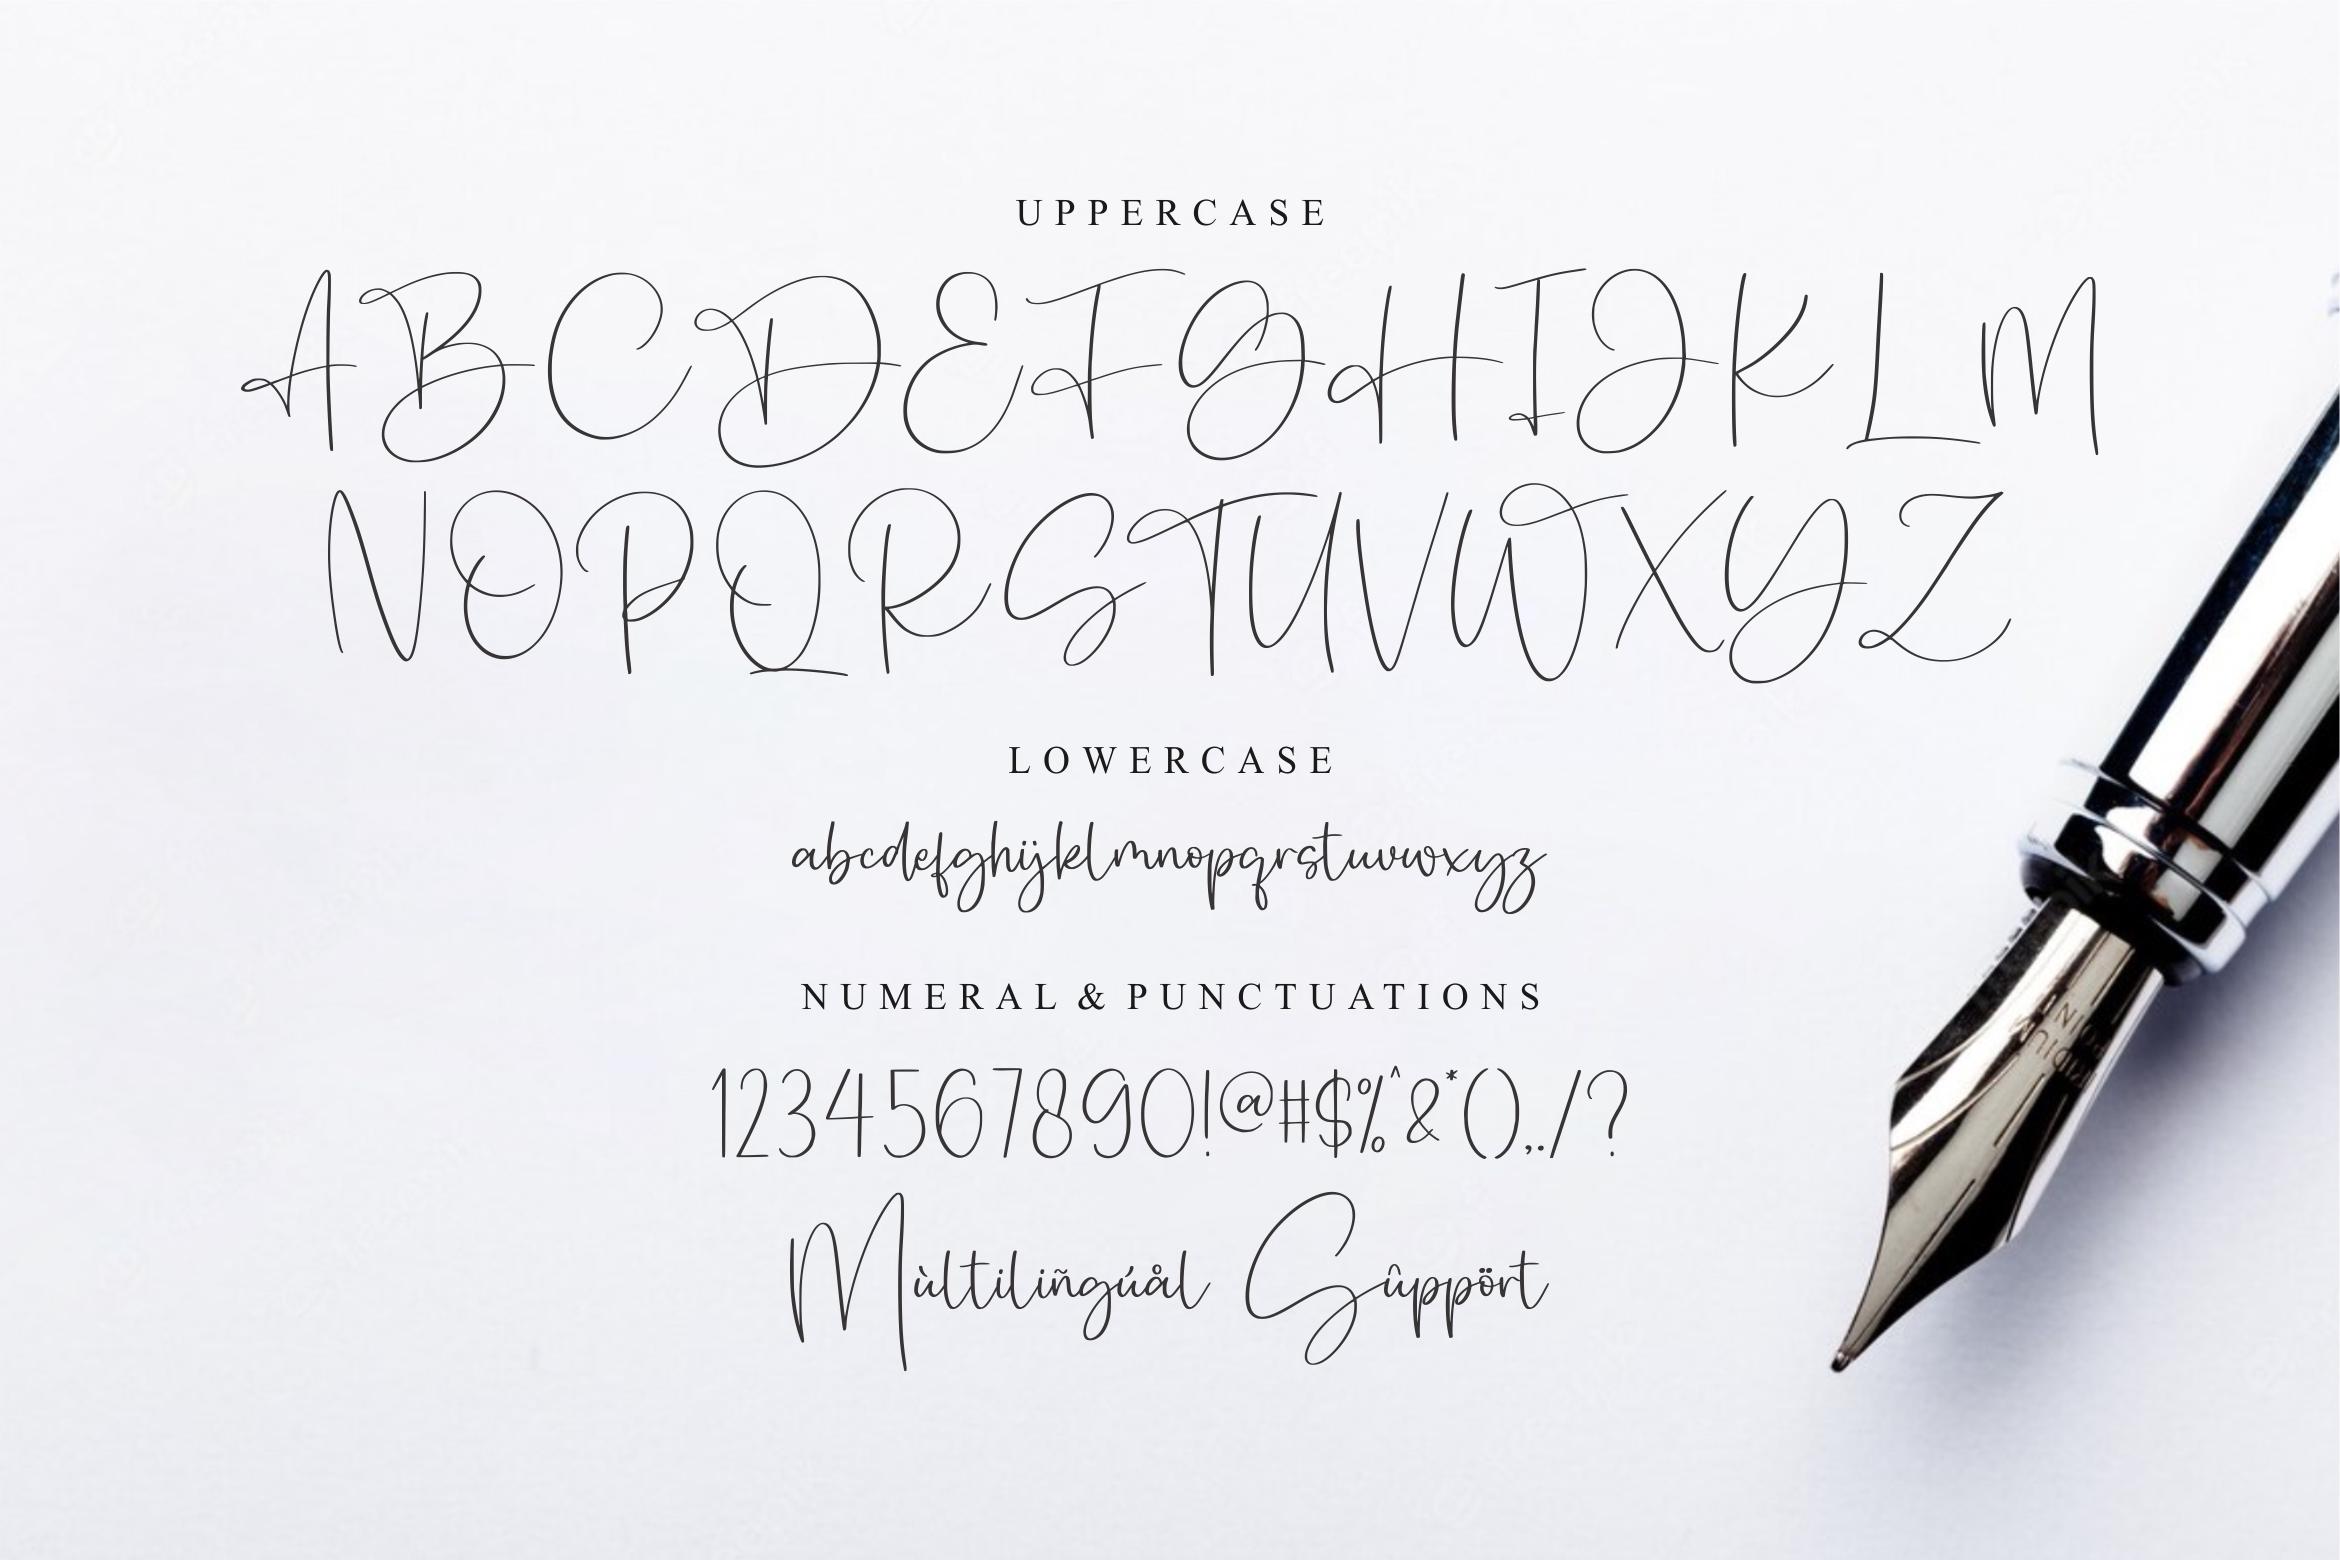 UPPERCASE
ABCDEFGHIJKLM
NOPQRSTUVWXYZ
LOWERCASE
abcdefghijklmnopqrstuvwxyz
NUMERAL & PUNCTUATIONS
1234567890!@#$%^&*(),./?
Mùltiliñgúål Sûppört